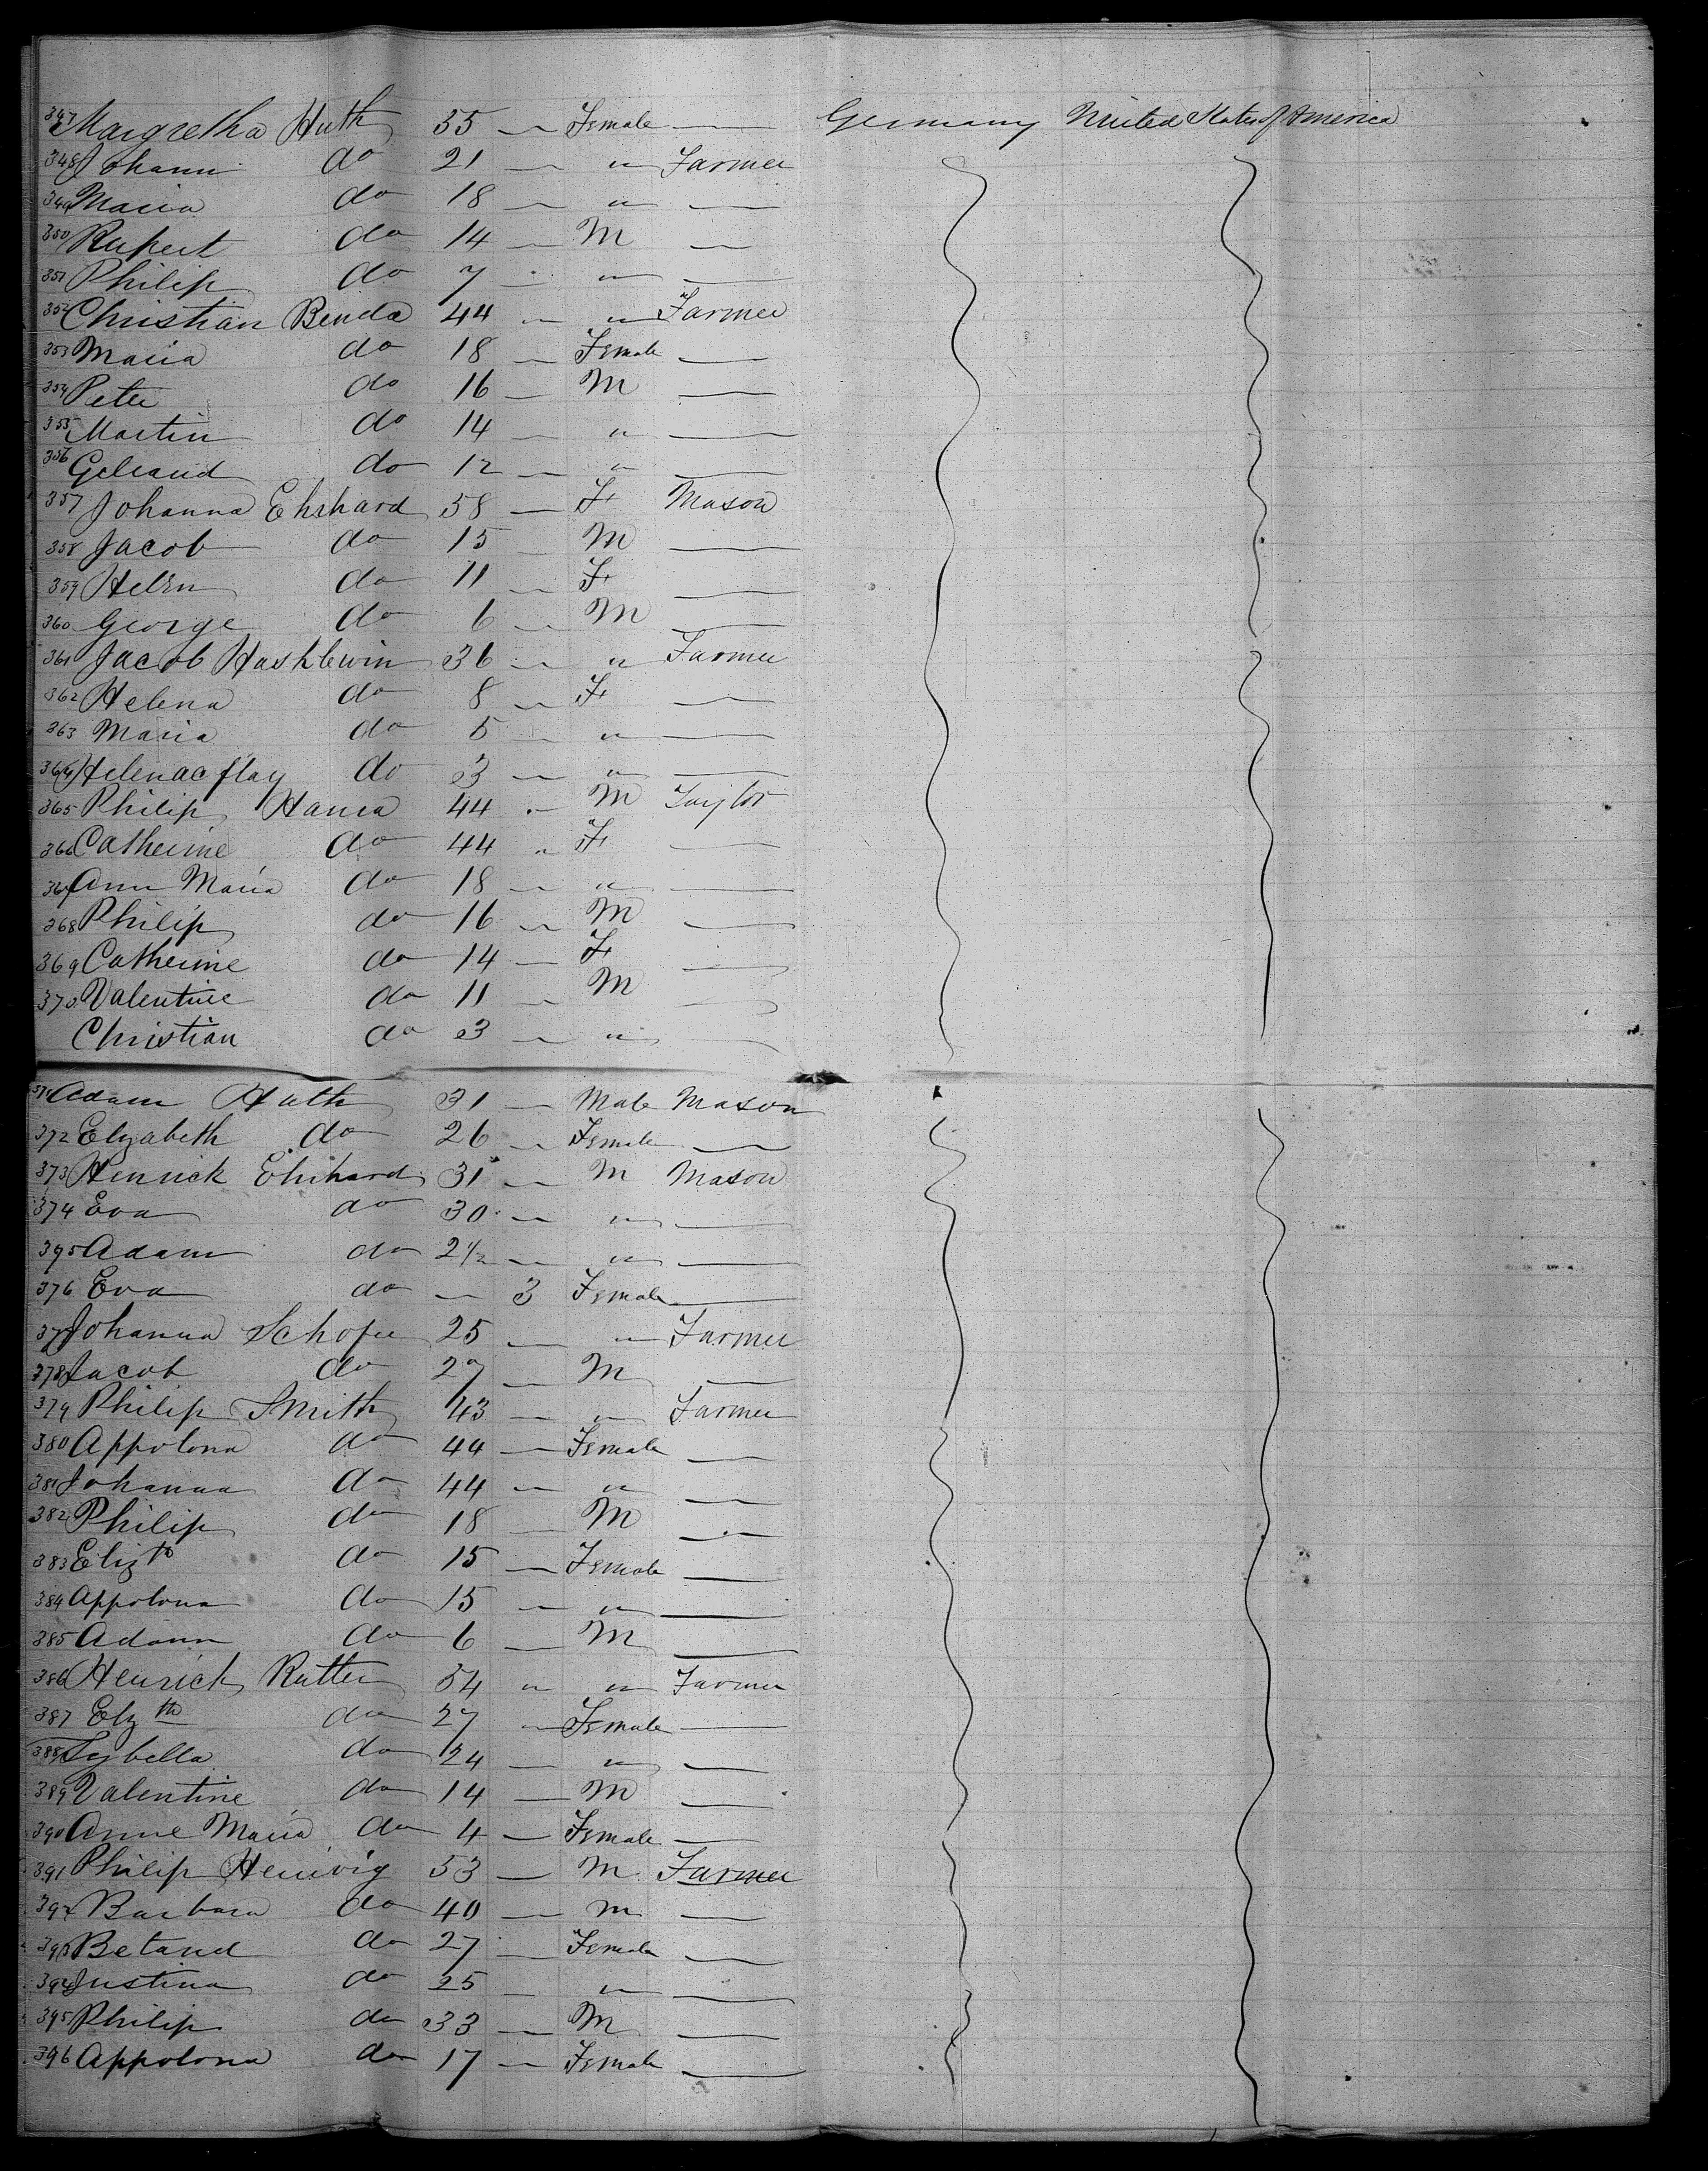 347 Margretha Huth 55 — Female — Germany United States of America
348 Johann do 21 — " Farmer
349 Maria do 18 — " —
350 Rupert do 14 — M —
351 Philip do 7 - " —
352 Christian Benda 44 — " Farmer
353 Maria do 18 — Female —
354 Peter do 16 — M —
355 Martin do 14 — " —
356 do 12 — " —
357 Johanna Ehrhard 58 — F Mason
358 Jacob do 15 M —
359 Helen do 11 — F —
360 George do 6 — M —
361 Jacob Hashlewin 36 — " Farmer
362 Helena do 8 — F —
363 Maria do 5 — " —
364 do 3 — " —
365 Philip 44 - M Taylor
366 Catherine do 44 " F —
367 Ann Maria do 18 — " —
368 Philip do 16 — M —
369 Catherine do 14 — F —
370 Valentine do 11 — M —
Christian do 3 — " —
371 Adam Huth 31 — Male Mason
372 Elyabeth do 26 — Female —
373 Henrick Ehrhard 31 — M Mason
374 Eva do 30 — " —
395 Adam do 2 1/2 — " —
376 Eva do — 3 Female —
377 Johanna Schofer 25 — " Farmer
378 Jacob do 27 — M —
379 Philip Smith 43 — " Farmer
380 Appolona do 44 — Female —
381 Johanna do 44 — " —
382 Philip do 18 — M —
383 Elizth do 15 — Female —
384 Appolona do 15 — " —
385 Adam do 6 — M —
386 Henrich Rutter 54 " " Farmer
387 Elyth do 27 — Female —
388 Sybella do 24 — " —
389 Valentine do 14 — M —
390 Anne Maria do 4 — Female —
391 Philip Herwig 53 — M Farmer
392 Barbara do 40 — m —
393 Betand do 27 — Female —
394 Justina do 25 — " —
395 Philip do 33 — M —
396 Appolona do 17 — Female —